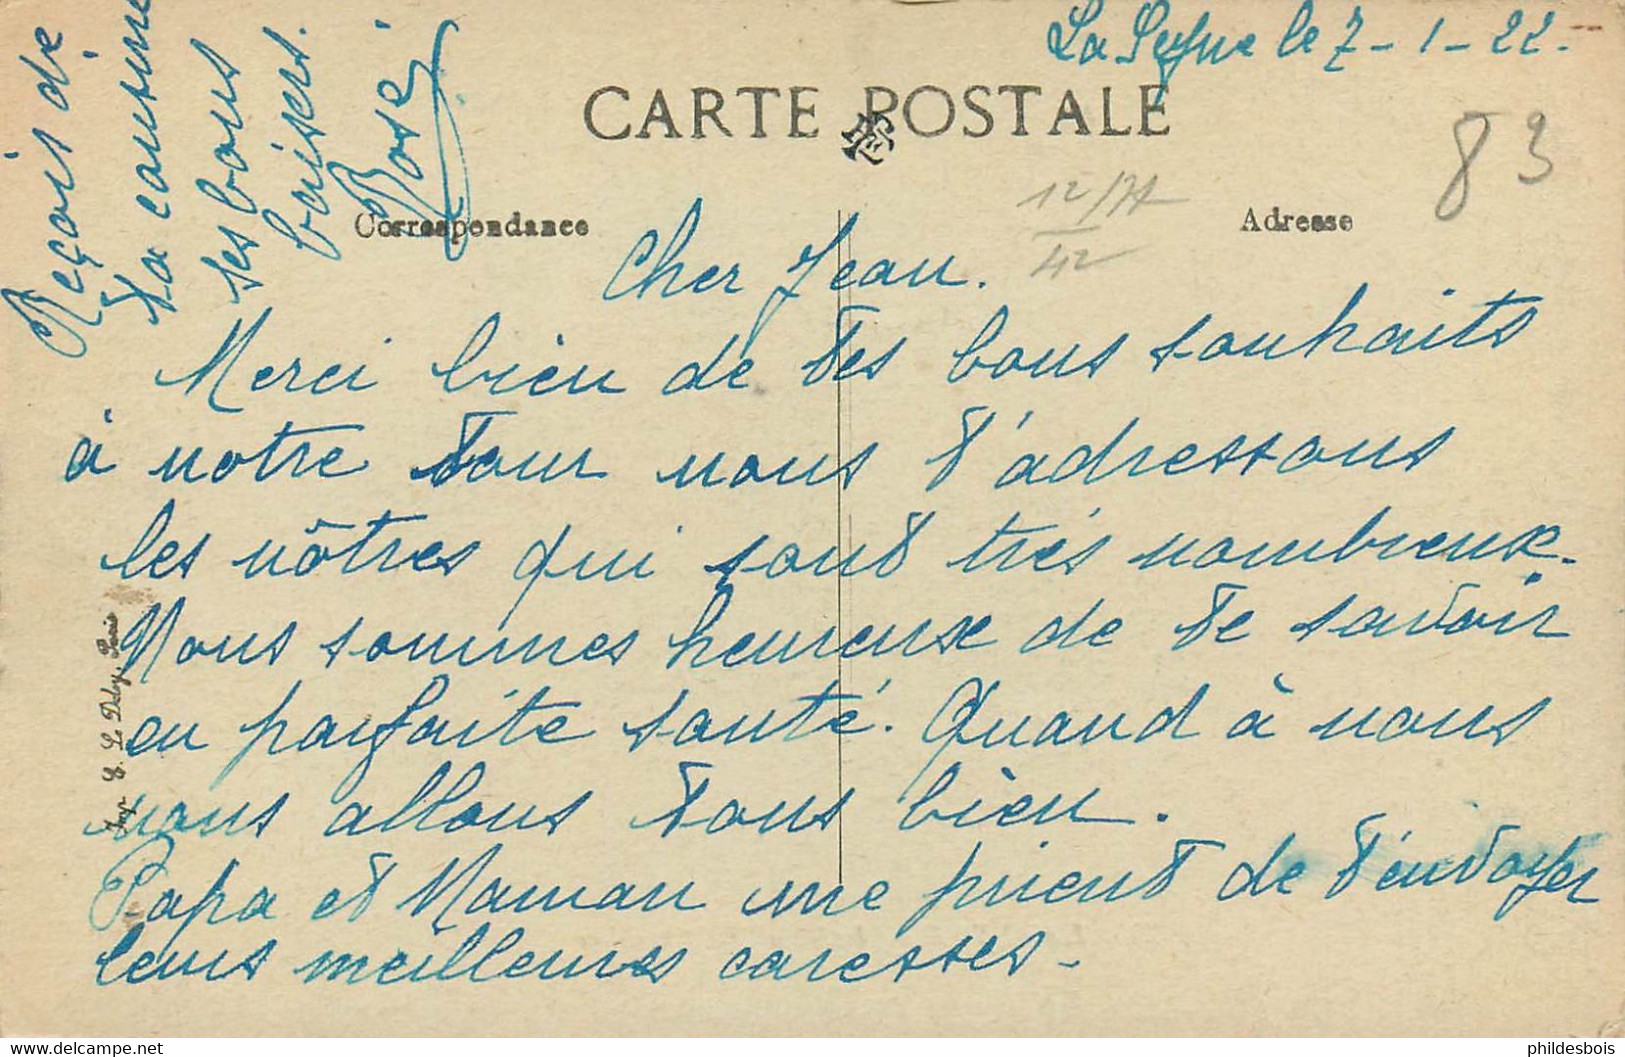 La Seyne le 7-1-22.
CARTE POSTALE
83
12/71
42
Correspondance
Adresse
Cher Jean.
Merci bien de tes bons souhaits
à notre tour nous t'adressons
les nôtres qui sont très nombreux.
Nous sommes heureux de te savoir
en parfaite santé. Quand à nous
nous allons tous bien.
Papa et Maman me prient de t'envoyer
leurs meilleures caresses-
Reçois de
ta cousine
ses bons
baisers.
Rosé
Imp. E. Le Deley, Paris
https://delcampe.net
phildesbois